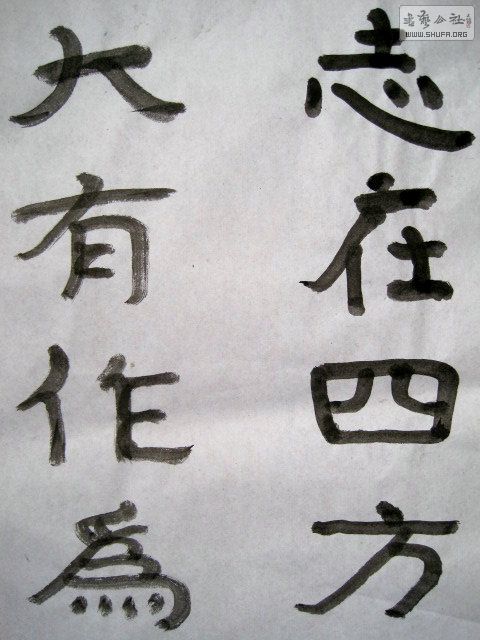 志在四方
大有作為
書藝公社
WWW.SHUFA.ORG